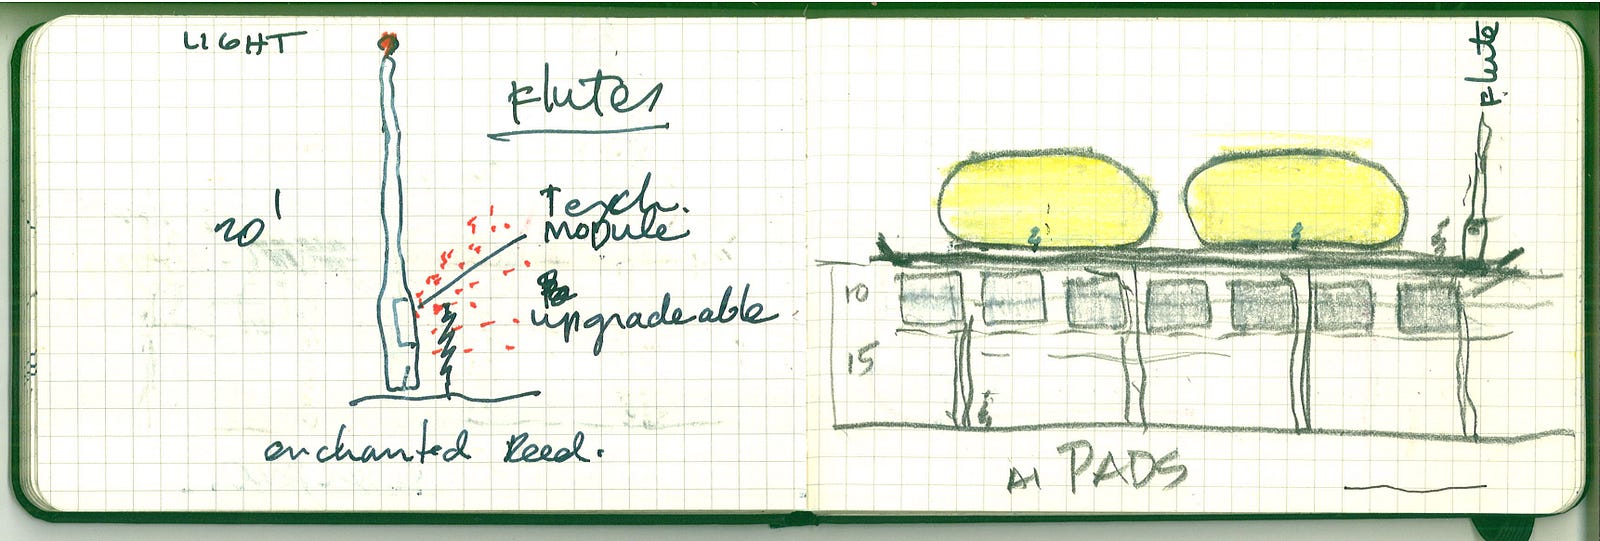 LIGHT
Flutes
20'
Tech.
MODULE
upgradeable
enchanted Reed.
Flute
10
15
AI PADS